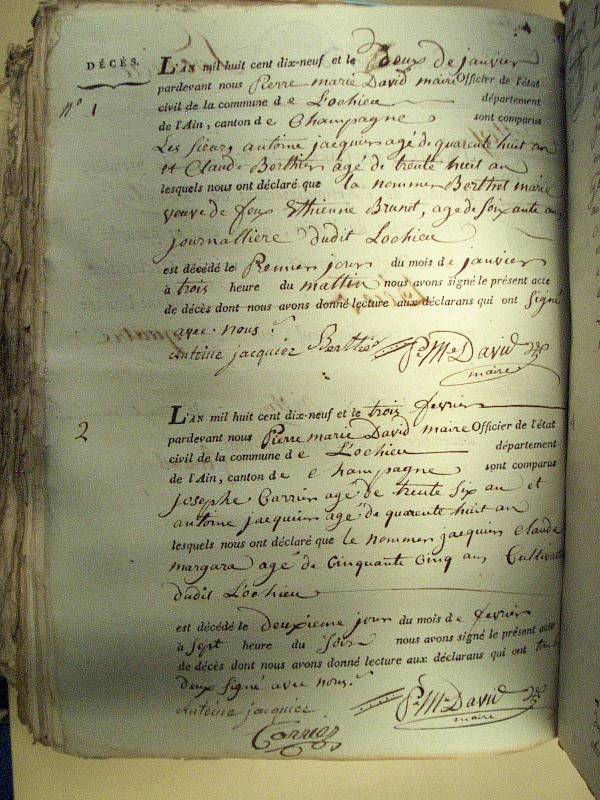 DÉCÈS.
n° 1
L'AN mil huit cent dix-neuf et le Deux de janvier
pardevant nous Pierre marie David maire Officier de l'état
civil de la commune de L'ochieu département
de l'Ain, canton de Champagne sont comparus
Les sieurs antoine jacquier agé de quarente huit an
et Claude Berthier agé de trente huit an
lesquels nous ont déclaré que la nommer Berthet marie
veuve de feux Ethienne Brunet, age de Soixante an
journalliere dudit Lochieu
est décédé le Premier jour du mois de janvier
à trois heure du mattin nous avons signé le présent acte
de décès dont nous avons donné lecture aux déclarans qui ont Signé
avec nous.
Antoine jacquier Berthier P.e M.e David
maire
2
L'AN mil huit cent dix-neuf et le trois fevrier
pardevant nous Pierre marie David maire Officier de l'état
civil de la commune de L'ochieu département
de l'Ain, canton de Champagne sont comparus
josephe Carrier agé de trente six an et
antoine jacquier agé de quarente huit an
lesquels nous ont déclaré que le nommer jacquier Claude
margara agé de Cinquante Cinq an Cultivat
dudit L'ochieu
est décédé le deuxieme jour du mois de fevrier
à sept heure du Soir nous avons signé le présent acte
de décès dont nous avons donné lecture aux déclarans qui ont tous
deux signé avec nous.
Antoine jacquier P.e M.e David
maire
Carrier